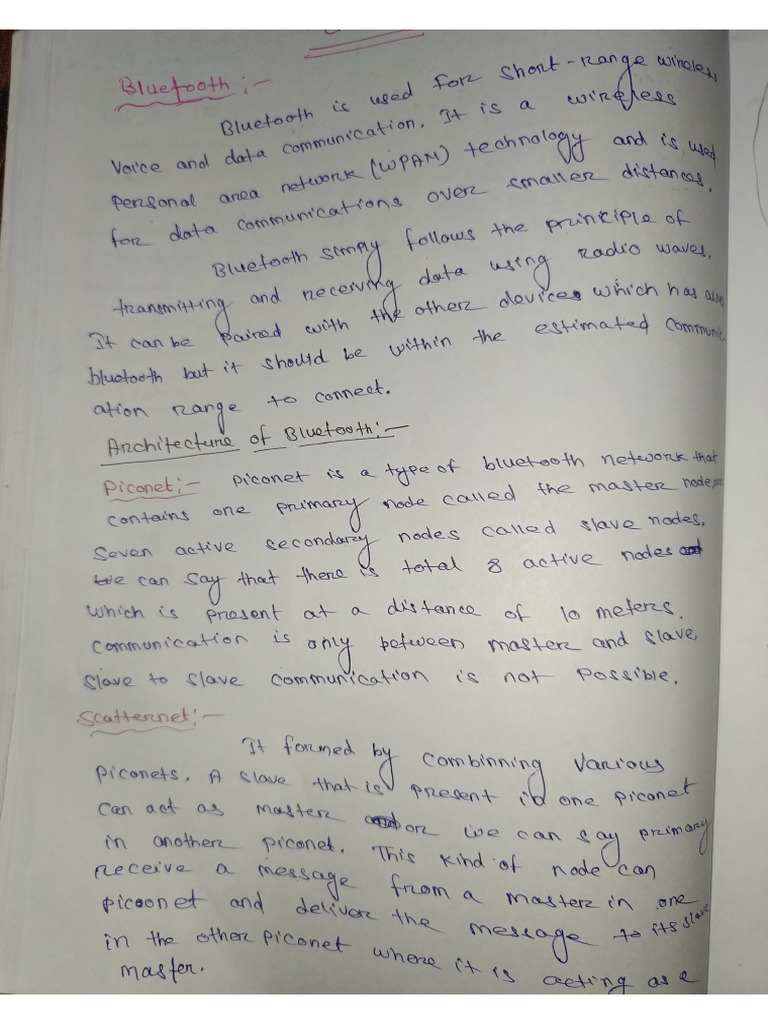 Bluetooth :-
Bluetooth is used for short-range wireless
voice and data communication. It is a wireless
personal area network (WPAN) technology and is used
for data communications over smaller distances.
Bluetooth simply follows the prinkiple of
transmitting and receiving data using radio waves.
It can be paired with the other devices which has also
bluetooth but it should be within the estimated communic-
ation range to connect.
Architecture of Bluetooth:-
Piconet:- Piconet is a type of bluetooth network that
contains one primary node called the master node
seven active secondary nodes called slave nodes.
We can say that there is total 8 active nodes
which is present at a distance of 10 meters.
Communication is only between master and slave,
slave to slave communication is not possible.
Scatternet:-
It formed by combinning various
piconets. A slave that is present in one piconet
can act as master or we can say primary
in another piconet. This kind of node can
receive a message from a master in one
picoonet and deliver the message to its slave
in the other piconet where it is acting as a
master.